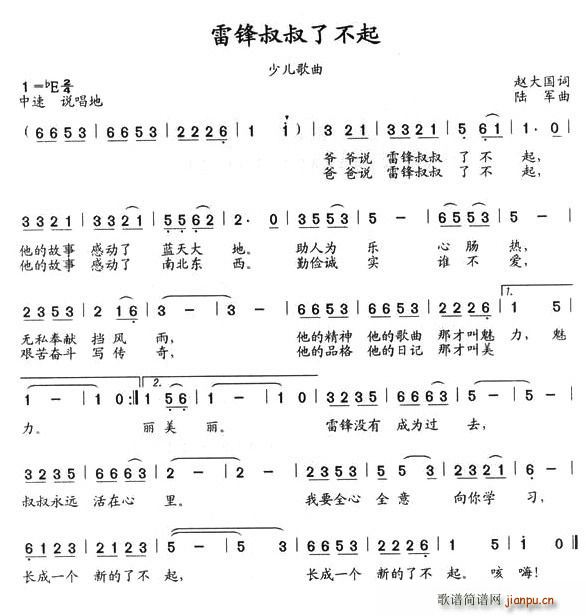 雷锋叔叔了不起
少儿歌曲
1=♭E 2/4
赵大国词
中速 说唱地
陆 军曲
(6 6 5 3 | 6 6 5 3 | 2 2 2 6 | 1 i) | 3 2 1 | 3 3 2 1 | 5 6 1 | 1· 0 |
爷 爷说 雷锋叔叔 了 不 起,
爸 爸说 雷锋叔叔 了 不 起,
3 3 2 1 | 3 3 2 1 | 5 5 6 2 | 2· 0 | 3 5 5 3 | 5 - | 6 5 5 3 | 5 - |
他的故事 感动了 蓝天大 地。 助人为 乐 心 肠 热,
他的故事 感动了 南北东 西。 勤俭诚 实 谁 不 爱,
2 3 5 3 | 2 1 6 | 3 - | 3 - | 6 6 5 3 | 6 6 5 3 | 2 2 2 6 | 1. 1 5 |
无私奉献 挡 风 雨, 他的精神 他的歌曲 那才叫魅 力, 魅
艰苦奋斗 写 传 奇, 他的品格 他的日记 那才叫美
1 - | 1 - | 1 0 :| 2. 1 5 6 | 1 - | 1 0 | 3 2 3 5 | 6 6 6 3 | 5 - |
力。 丽 美 丽。 雷锋没有 成为过 去,
3 2 3 5 | 6 6 6 3 | 2 - | 2 - | 3 2 3 5 | 5 5 3 | 2 3 2 1 | 6 - |
叔叔永远 活在心 里。 我要全心 全 意 向你学 习,
6 1 2 3 | 2 1 2 3 | 5 - | 5 - | 3 5 5 3 | 2 2 2 6 | 1 - | 5 5 ‖
长成一个 新的了不 起, 长成一个 新的了不 起。 咳 嗨!
歌谱简谱网
jianpu.cn